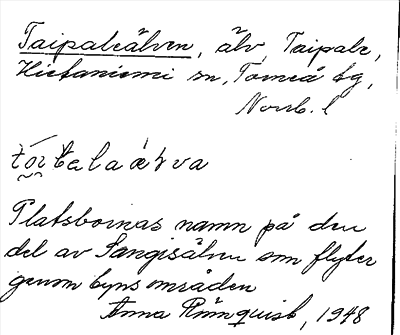 Taipaleälven, älv, Taipale,
Hietaniemi sn, Torneå tg,
Norrb. l
Platsbornas namn på den
del av Sangisälven som flyter
genom byns områden
Anna Rönnquist, 1948